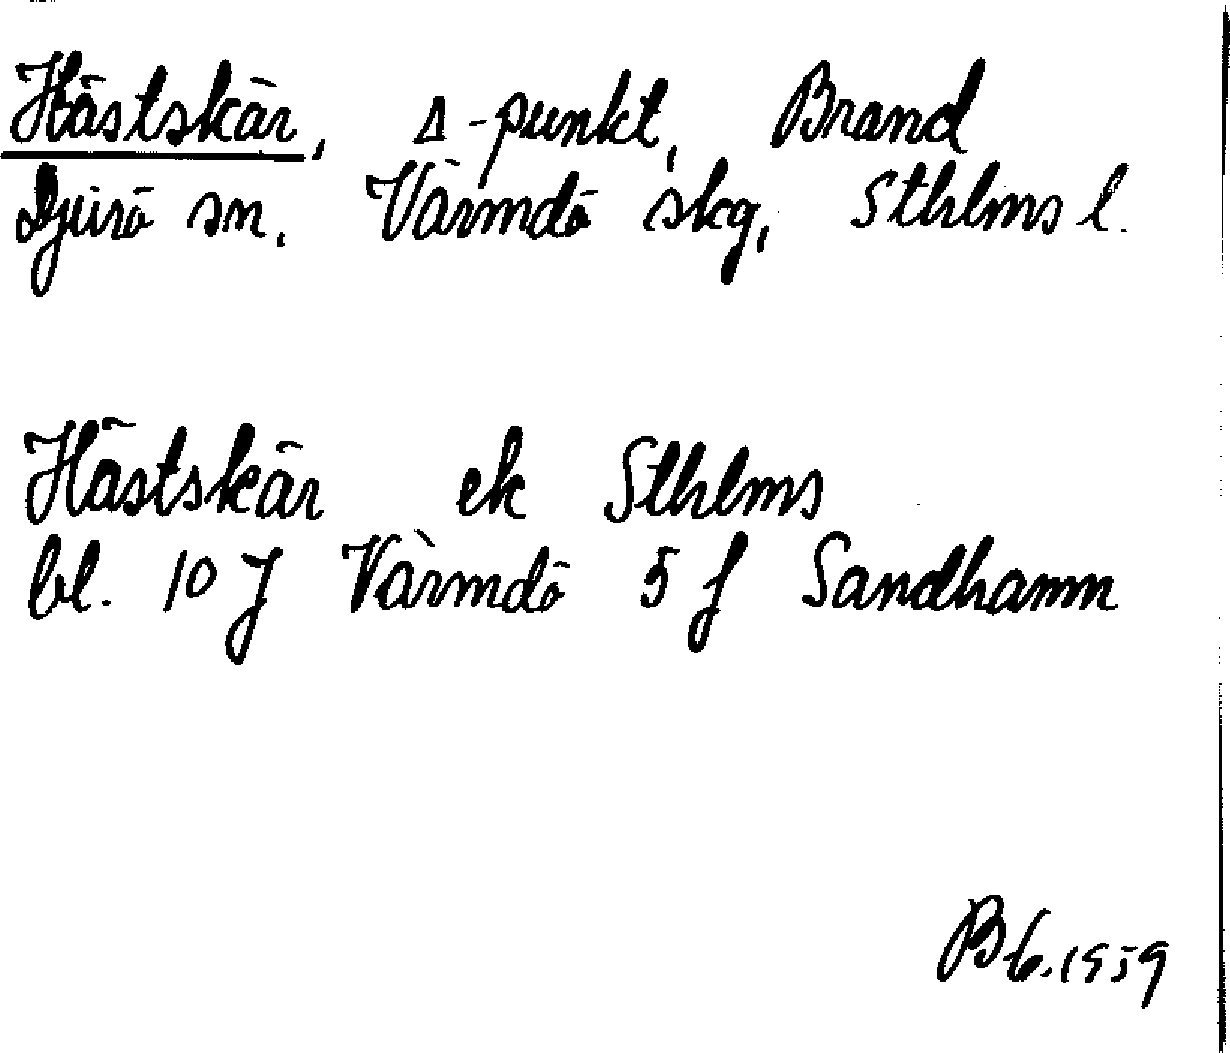 Hästskär, Δ-punkt, Brand
Djurö sn. Värmdö skg, Sthlms l.
Hästskär ek Sthlms
bl. 10 J Värmdö 5 f Sandhamn
B 6.1959